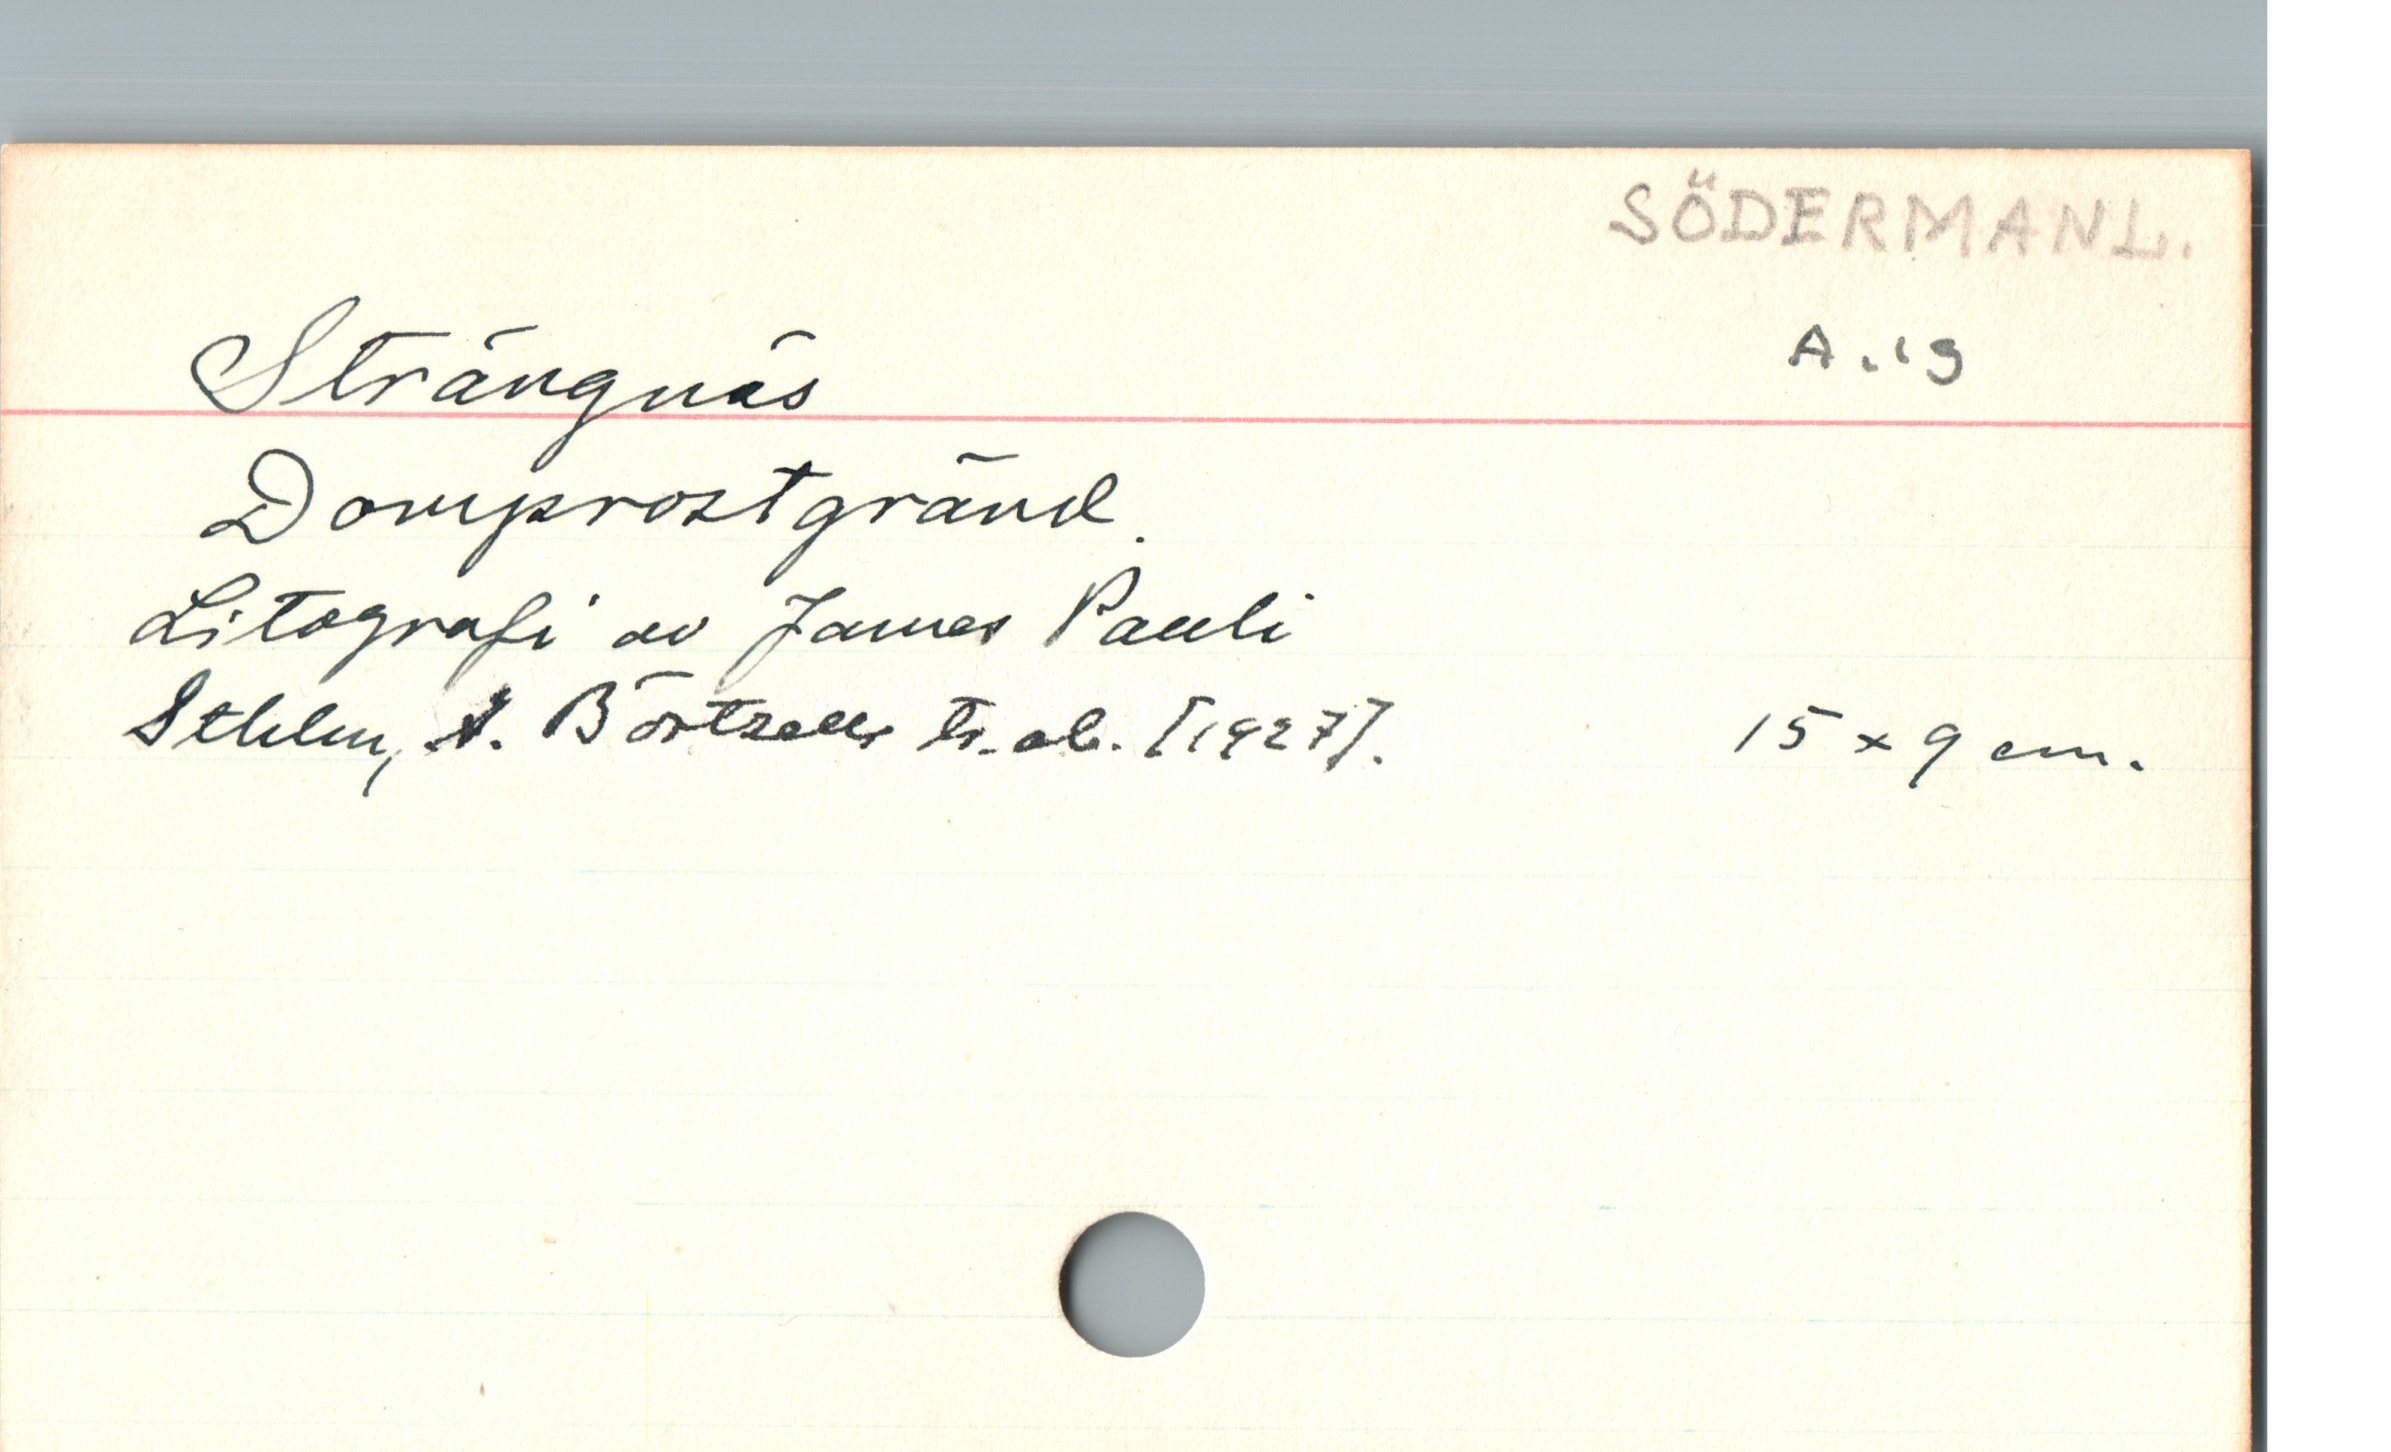 SÖDERMANL.
A.13
Strängnäs
Domprostgränd.
Litografi av James Pauli
Sthlm, A. Börtzells tr. ab. [1927]. 15 x 9 cm.